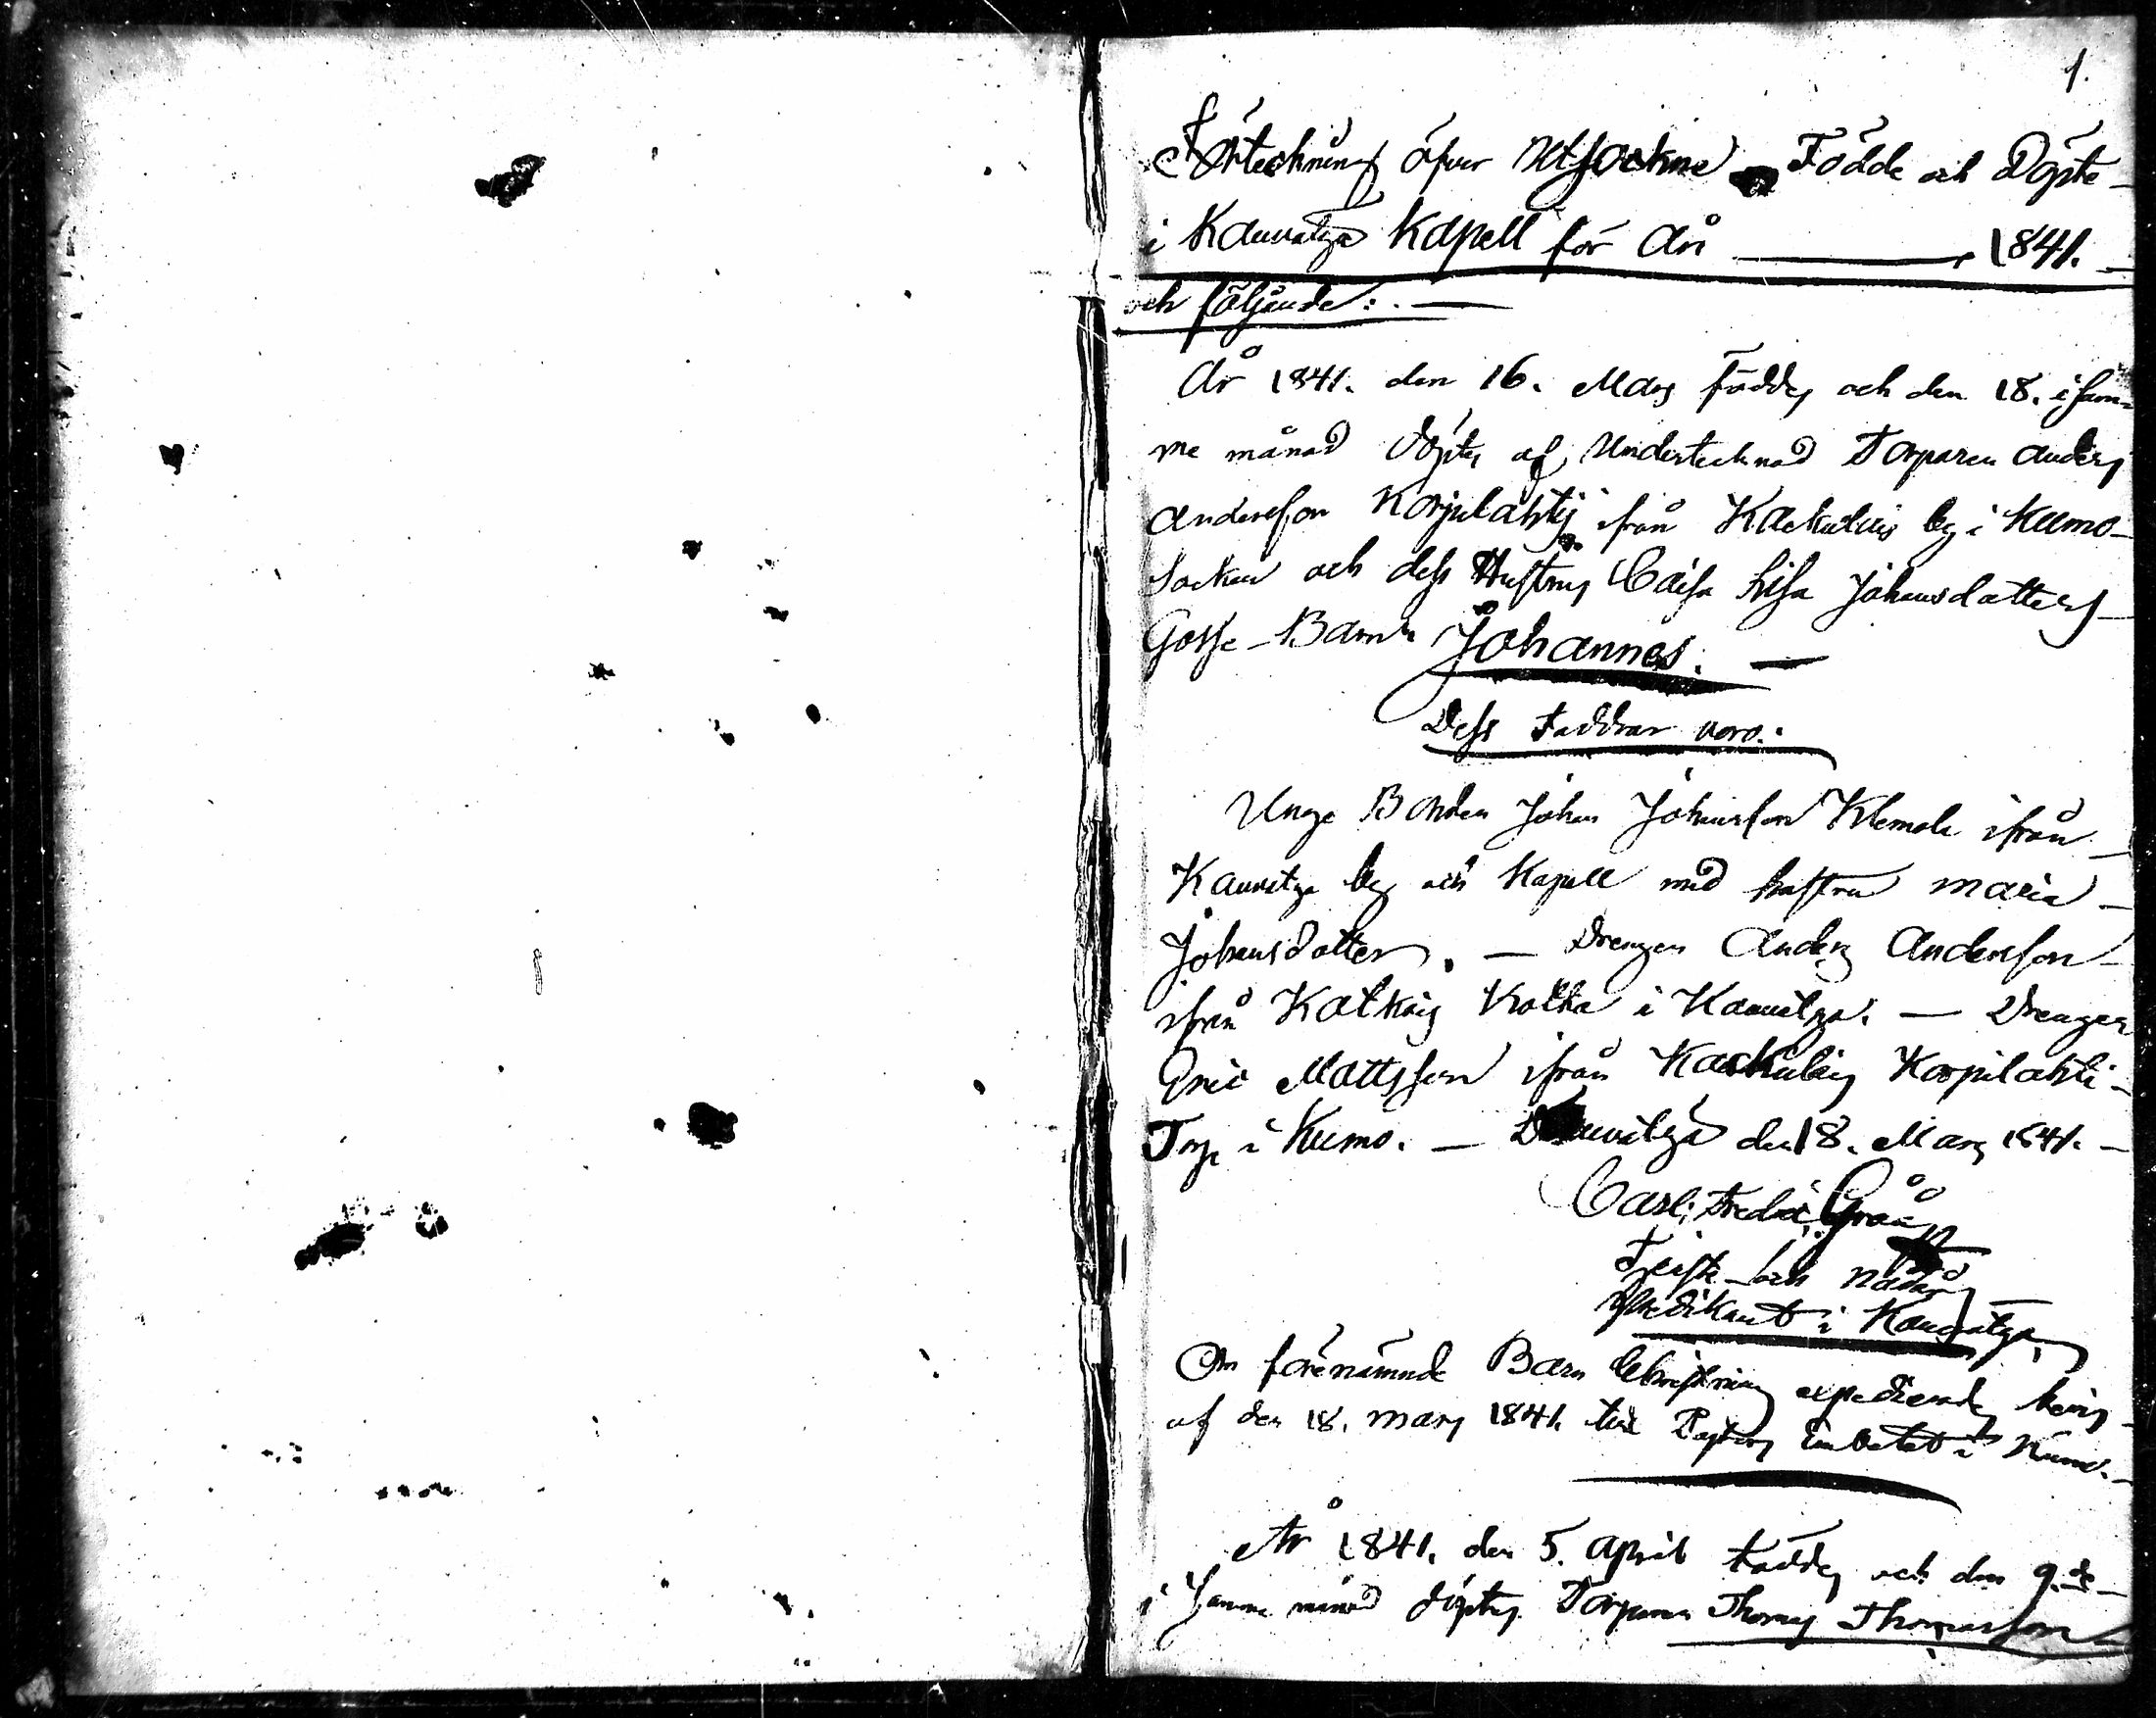 1.
Förteckning öfver Utsockne Födde och Döpte
i Kauvatza Kapell för År 1841.
och följande:
År 1841. den 16. Mars föddes och den 18. i sam-
me månad döptes af Undertecknad Torparen Anders
Andersson Korpilahti ifrån Kackulais by i Kumo
Socken och dess Hustrus Caisa Lisa Johansdotters
Gosse-Barn Johannes.
Dess Faddrar voro:
Unge Bonden Johan Johansson Klemola ifrån
Kauvatza by och Kapell med hustru Maria
Johansdotter. — Drengen Anders Andersson
ifrån Katkais Kotka i Kauvatza. — Drengen
Eric Mattsson ifrån Kackulais Korpilahti
Torp i Kumo. — Kauvatza den 18. Mars 1841. —
Carl Fredric Gråå
Förste och Nådårs
Predikant i Kauvatza
Om förenämnde Barns Christning expedierades bevis
af den 18. Mars 1841. till Pastors Embetet i Kumo. —
År 1841. den 5. April föddes och den 9.de
i samma månad döptes Torparen Thomas Thomasson